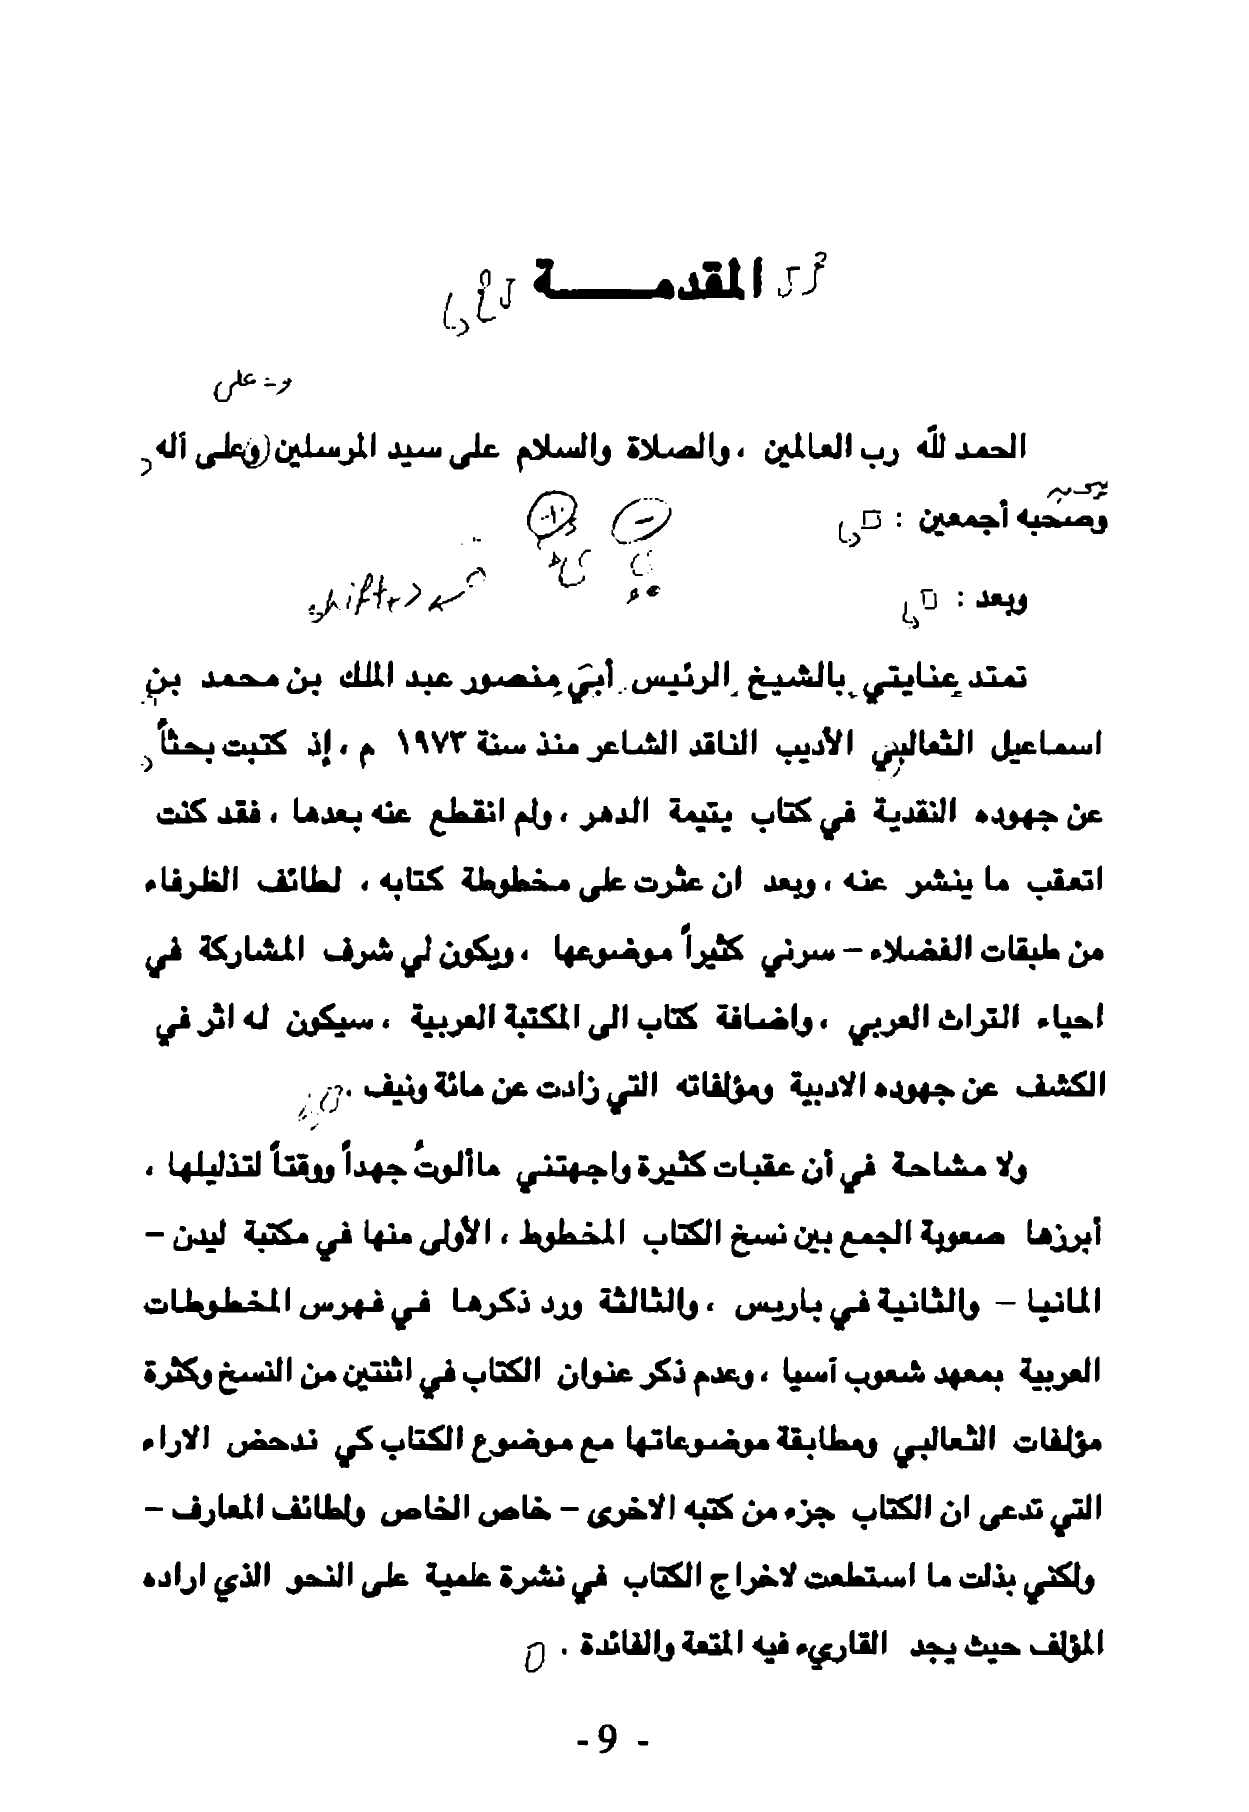 المقدمـــــة
و = على
الحمد لله رب العالمين ، والصلاة والسلام على سيد المرسلين (و) على آله
وصحبه أجمعين :
shift
وبعد :
تمتد عنايتي بالشيخ الرئيس أبي منصور عبد الملك بن محمد بن
اسماعيل الثعالبي الأديب الناقد الشاعر منذ سنة ١٩٧٣ م ، إذ كتبت بحثاً
عن جهوده النقدية في كتاب يتيمة الدهر ، ولم انقطع عنه بعدها ، فقد كنت
اتعقب ما ينشر عنه ، وبعد ان عثرت على مخطوطة كتابه ، لطائف الظرفاء
من طبقات الفضلاء - سرني كثيراً موضوعها ، ويكون لي شرف المشاركة في
احياء التراث العربي ، واضافة كتاب الى المكتبة العربية ، سيكون له اثر في
الكشف عن جهوده الادبية ومؤلفاته التي زادت عن مائة ونيف .
ولا مشاحة في أن عقبات كثيرة واجهتني ماألوتُ جهداً ووقتاً لتذليلها ،
أبرزها صعوبة الجمع بين نسخ الكتاب المخطوط ، الأولى منها في مكتبة ليدن -
المانيا - والثانية في باريس ، والثالثة ورد ذكرها في فهرس المخطوطات
العربية بمعهد شعوب آسيا ، وعدم ذكر عنوان الكتاب في اثنتين من النسخ وكثرة
مؤلفات الثعالبي ومطابقة موضوعاتها مع موضوع الكتاب كي ندحض الاراء
التي تدعى ان الكتاب جزء من كتبه الاخرى - خاص الخاص ولطائف المعارف -
ولكني بذلت ما استطعت لاخراج الكتاب في نشرة علمية على النحو الذي اراده
المؤلف حيث يجد القاريء فيه المتعة والفائدة .
- 9 -